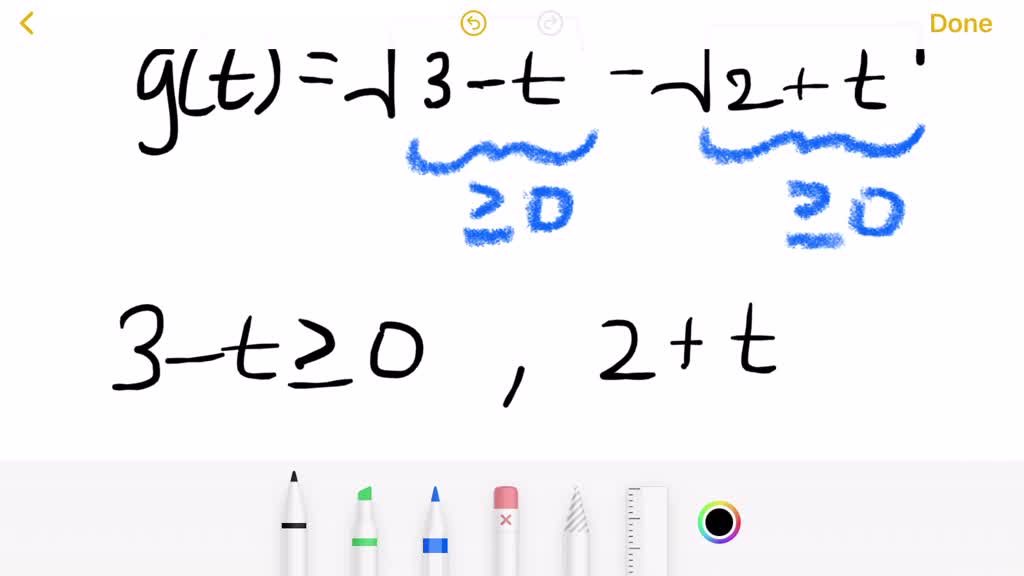 Done
g(t) = √3-t - √2+t
≥0 ≥0
3-t≥0 , 2+t